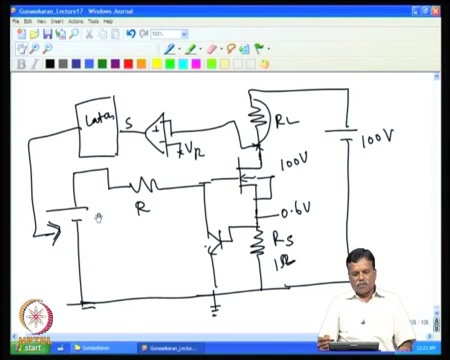 Gunasekaran_Lecture17 - Windows Journal
File Edit View Insert Actions Tools Help
150%
B I
Latch
S
+
VR
RL
100V
100V
R
0.6V
RS
1Ω
NPTEL
start
Gunasekaran
Gunasekaran_Lectur...